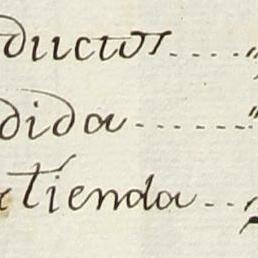 ductos....."
dida......."
tienda...